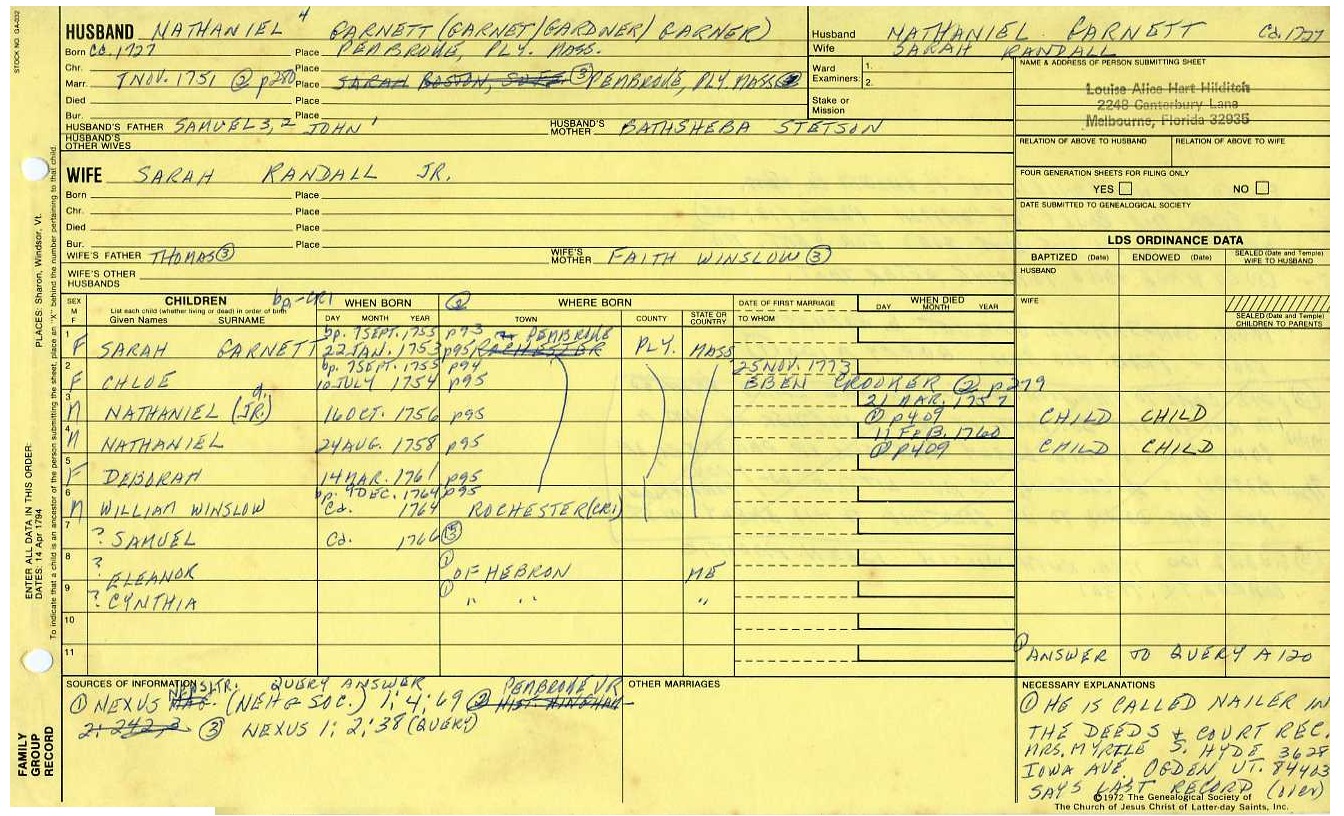 STOCK NO. GA-032
HUSBAND NATHANIEL 4 GARNETT (GARNET/GARDNER/GARNER)
Born Ca. 1727 Place PEMBROKE, PLY. MASS.
Chr. Place
Marr. 7 NOV. 1751 ② p280 Place SARAH BOSTON, SUFF ③ PEMBROKE, PLY. MASS ②
Died Place
Bur. Place
HUSBAND'S FATHER SAMUEL 3, 2 JOHN 1 HUSBAND'S MOTHER BATHSHEBA STETSON
HUSBAND'S OTHER WIVES
Husband NATHANIEL GARNETT Ca. 1727
Wife SARAH RANDALL
Ward Examiners: 1.
2.
Stake or Mission
NAME & ADDRESS OF PERSON SUBMITTING SHEET
Louise Alice Hart Hilditch
2248 Canterbury Lane
Melbourne, Florida 32935
RELATION OF ABOVE TO HUSBAND RELATION OF ABOVE TO WIFE
FOUR GENERATION SHEETS FOR FILING ONLY
YES NO
DATE SUBMITTED TO GENEALOGICAL SOCIETY
WIFE SARAH RANDALL JR.
Born Place
Chr. Place
Died Place
Bur. Place
WIFE'S FATHER THOMAS ③ WIFE'S MOTHER FAITH WINSLOW ③
WIFE'S OTHER HUSBANDS
LDS ORDINANCE DATA
BAPTIZED (Date) ENDOWED (Date) SEALED (Date and Temple) WIFE TO HUSBAND
HUSBAND
WIFE
SEALED (Date and Temple) CHILDREN TO PARENTS
SEX M F CHILDREN bp.-CR1 WHEN BORN ② WHERE BORN DATE OF FIRST MARRIAGE WHEN DIED
List each child (whether living or dead) in order of birth
Given Names SURNAME DAY MONTH YEAR TOWN COUNTY STATE OR COUNTRY TO WHOM DAY MONTH YEAR
1 bp. 7 SEPT. 1755 p93 PEMBROKE
F SARAH GARNETT 22 JAN. 1753 p95 ROCHESTER PLY. MASS
2 bp. 7 SEPT. 1755 p94 25 NOV. 1773
F CHLOE 10 JULY 1754 p95 EBEN CROOKER ② p279
3 d. 21 MAR. 1757
M NATHANIEL (JR) 16 OCT. 1756 p95 ① p409 CHILD CHILD
4 11 FEB. 1760
M NATHANIEL 24 AUG. 1758 p95 ① p409 CHILD CHILD
5
F DEBORAH 14 MAR. 1761 p95
6 bp. 9 DEC. 1764 p95
M WILLIAM WINSLOW Ca. 1764 ROCHESTER (CR1)
7 ? SAMUEL Ca. 1766 ③
8 ? ELEANOR ① OF HEBRON ME
9 ? CYNTHIA ① " " "
10
11
① ANSWER TO QUERY A 120
SOURCES OF INFORMATION
NEWSLTR. QUERY ANSWER PEMBROKE VR
① NEXUS MAG. (NEHG SOC.) 1; 4; 69 ② HIST. HINGHAM
2: 242,3 ③ NEXUS 1; 2; 38 (QUERY)
OTHER MARRIAGES
NECESSARY EXPLANATIONS
① HE IS CALLED NAILER IN
THE DEEDS & COURT REC.
MRS. MYRTLE S. HYDE 3628
IOWA AVE. OGDEN, UT. 84403
SAYS LAST RECORD (over)
©1972 The Genealogical Society of
The Church of Jesus Christ of Latter-day Saints, Inc.
FAMILY GROUP RECORD
ENTER ALL DATA IN THIS ORDER:
DATES: 14 Apr 1794
PLACES: Sharon, Windsor, Vt.
To indicate that a child is an ancestor of the person submitting the sheet, place an "X" behind the number pertaining to that child.